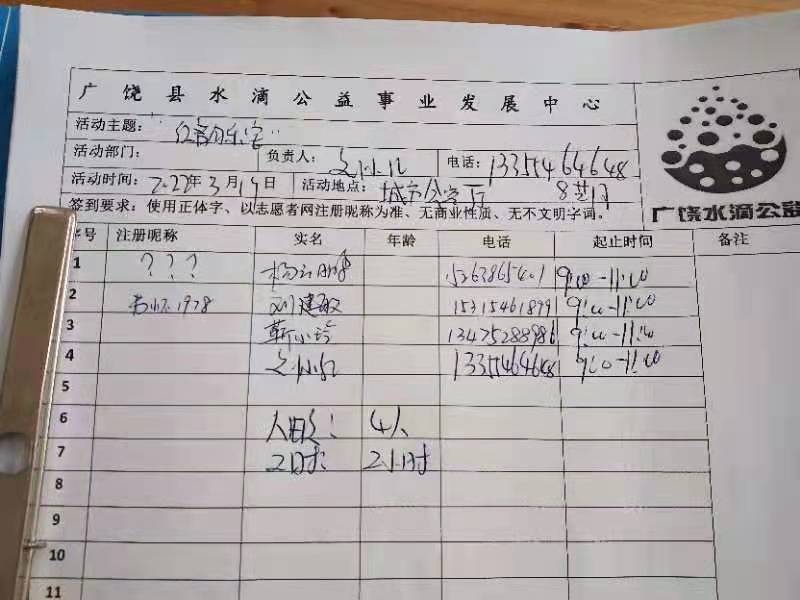 广饶县水滴公益事业发展中心
活动主题：
活动部门： 负责人： 电话：13354464648
活动时间：2022年3月19日 活动地点：
签到要求：使用正体字、以志愿者网注册昵称为准、无商业性质、无不文明字词。
广饶水滴公益
序号 注册昵称 实名 年龄 电话 起止时间 备注
1 ？？？ 9:00-11:00
2 1978 刘建敏 15315461879 9:00-11:00
3 靳小玲 13475288986 9:00-11:00
4 13354464648 9:00-11:00
5
6 人数： 4人
7 工时： 2小时
8
9
10
11